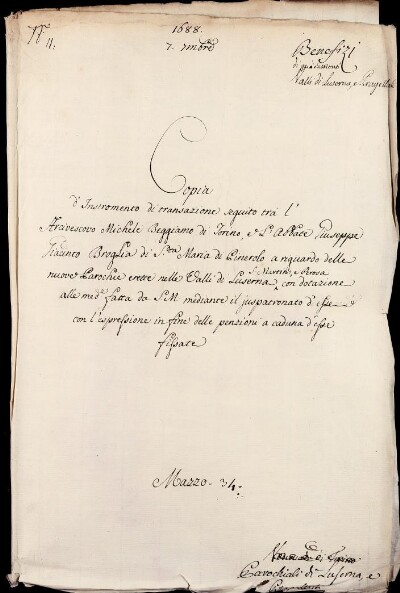 1688.
7. mbre
N.° 11.
Benefizj
Valli di Luserna, e Pragellato
Copia
d'Instromento di transazione seguito trà l'
Arcivescovo Michele Beggiamo di Torino, e L'Abbate Giuseppe
Giacinto Broglia di S.ta Maria di Pinerolo a riguardo delle
nuove Parochie erette nelle Valli di Luserna, S. Martino, e Perosa
con dotazione
alle med.e fatta da S.M. mediante il juspatronato d'esse
con l'espressione in fine delle pensioni a caduna d'esse
fissate
Marzo - 34.
di Torino
Parochiali di Luserna, e